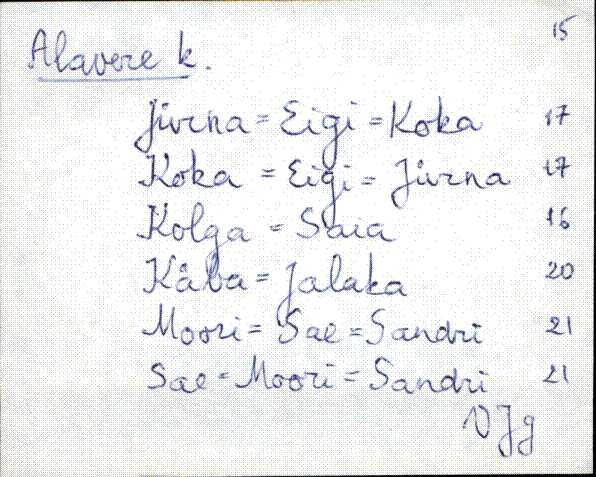 15
Alavere k.
Jürna = Eigi = Koka 17
Koka = Eigi = Jürna 17
Kolga = Saia 16
Kåba = Jalaka 20
Moori = Sae = Sandri 21
Sae = Moori = Sandri 21
VJg